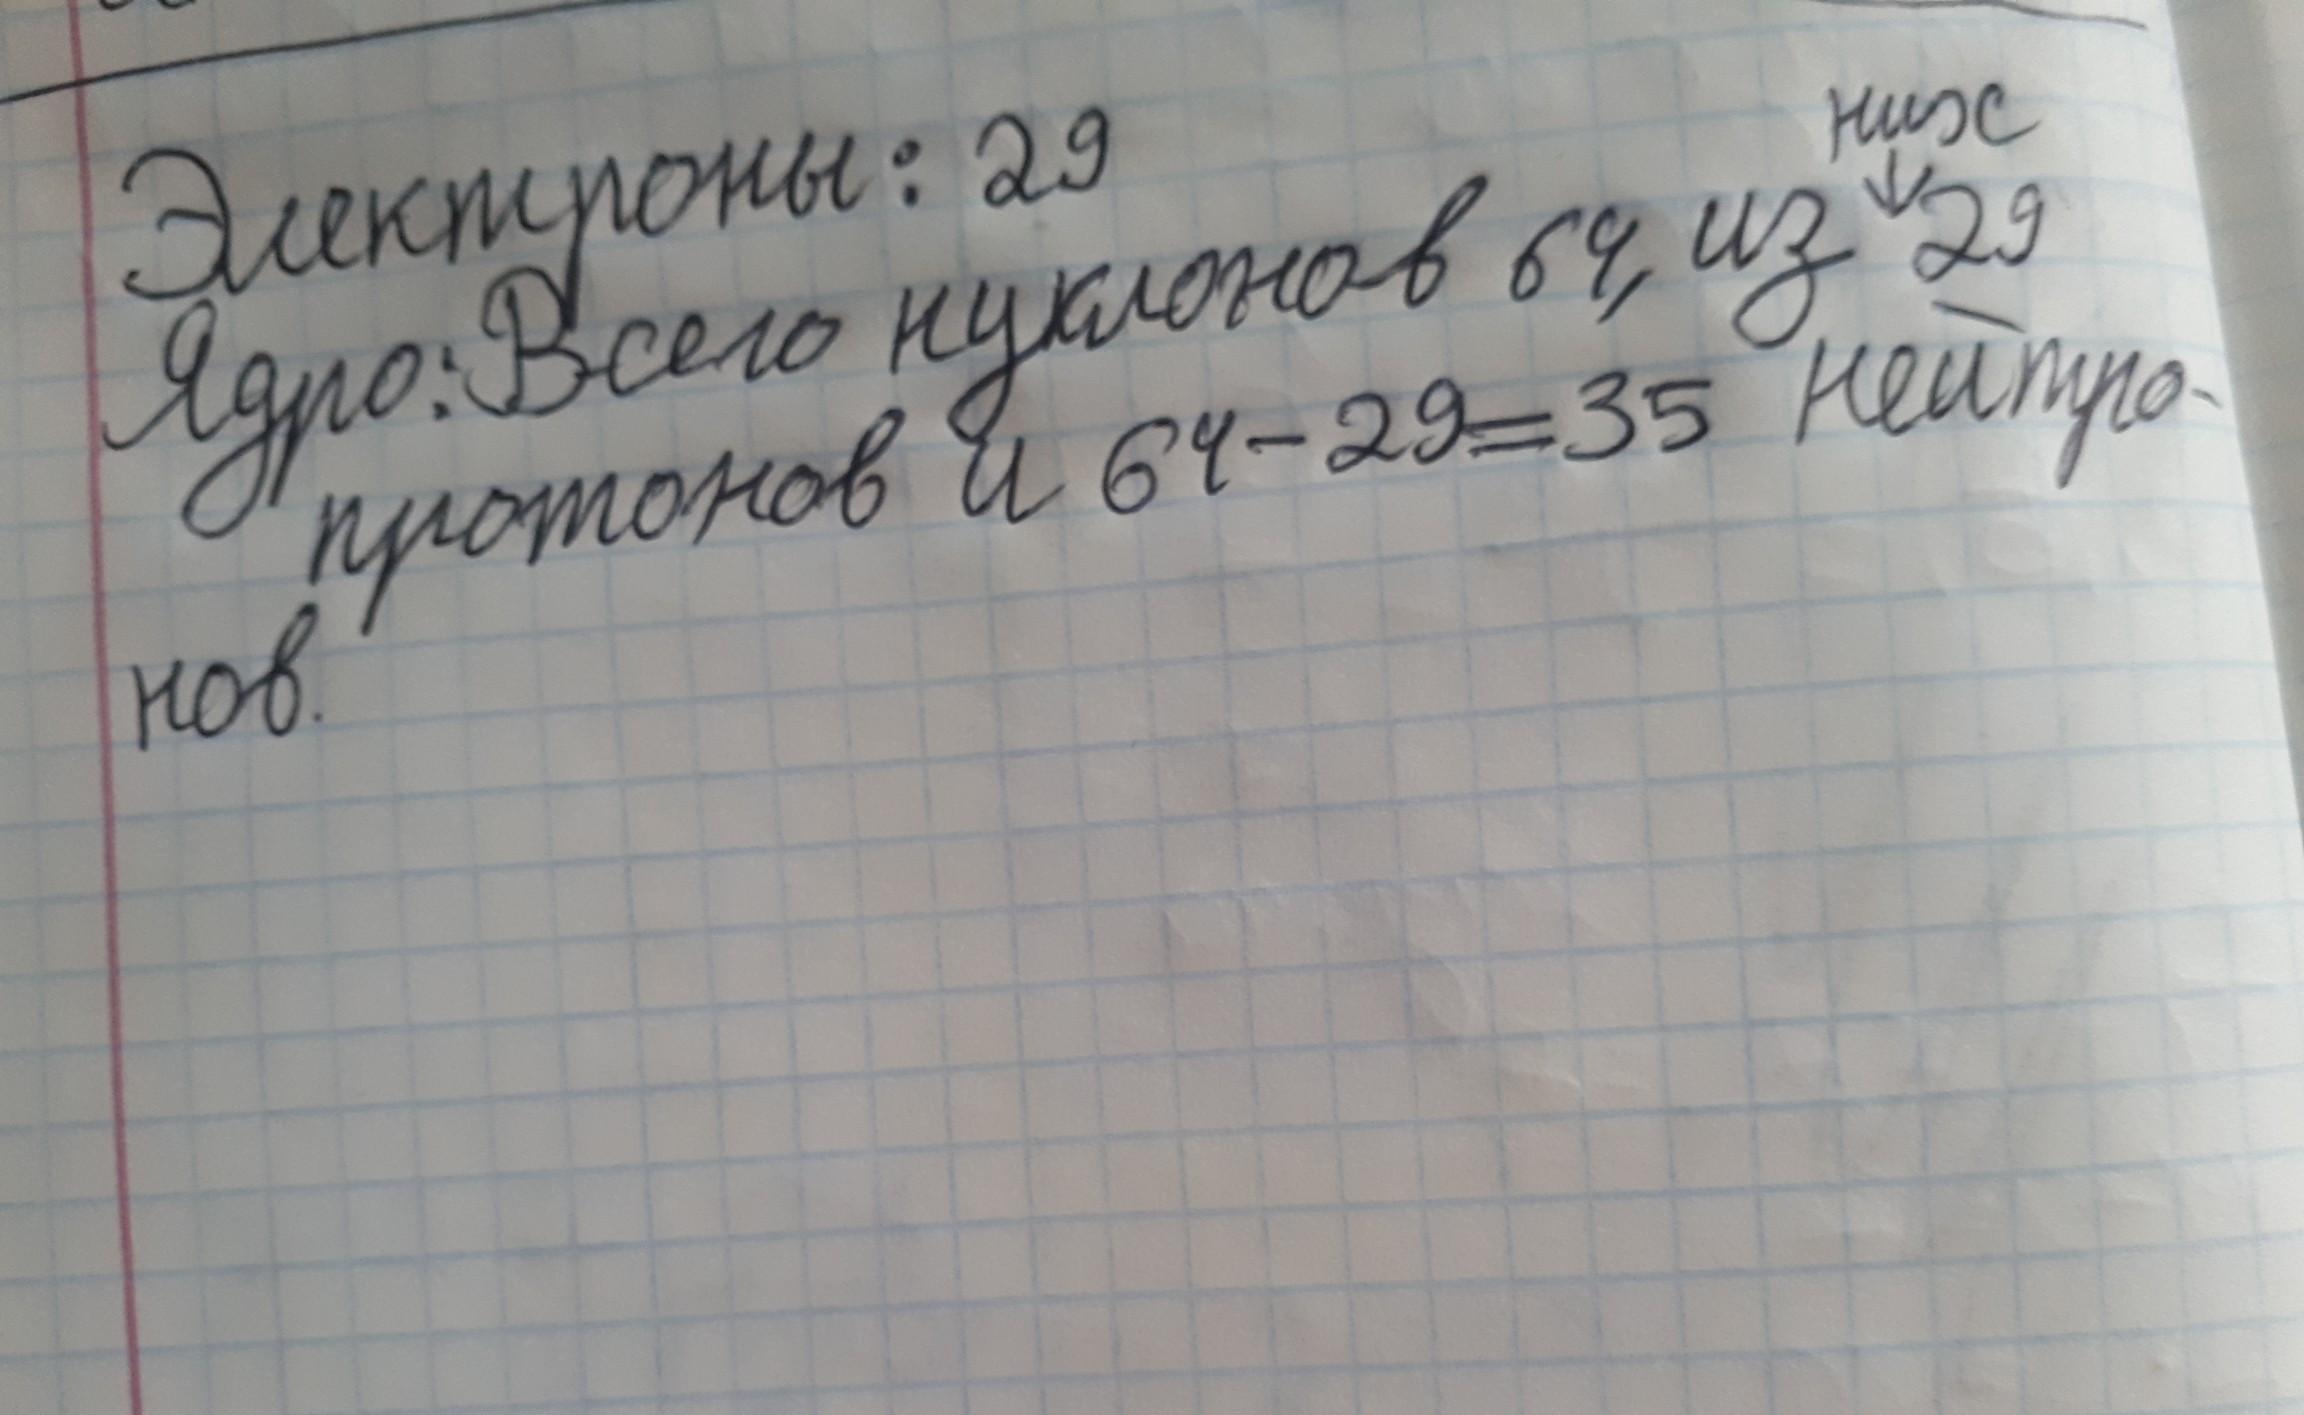 Электроны: 29
Ядро: Всего нуклонов 64, из них 29
протонов и 64-29=35 нейтро-
нов.